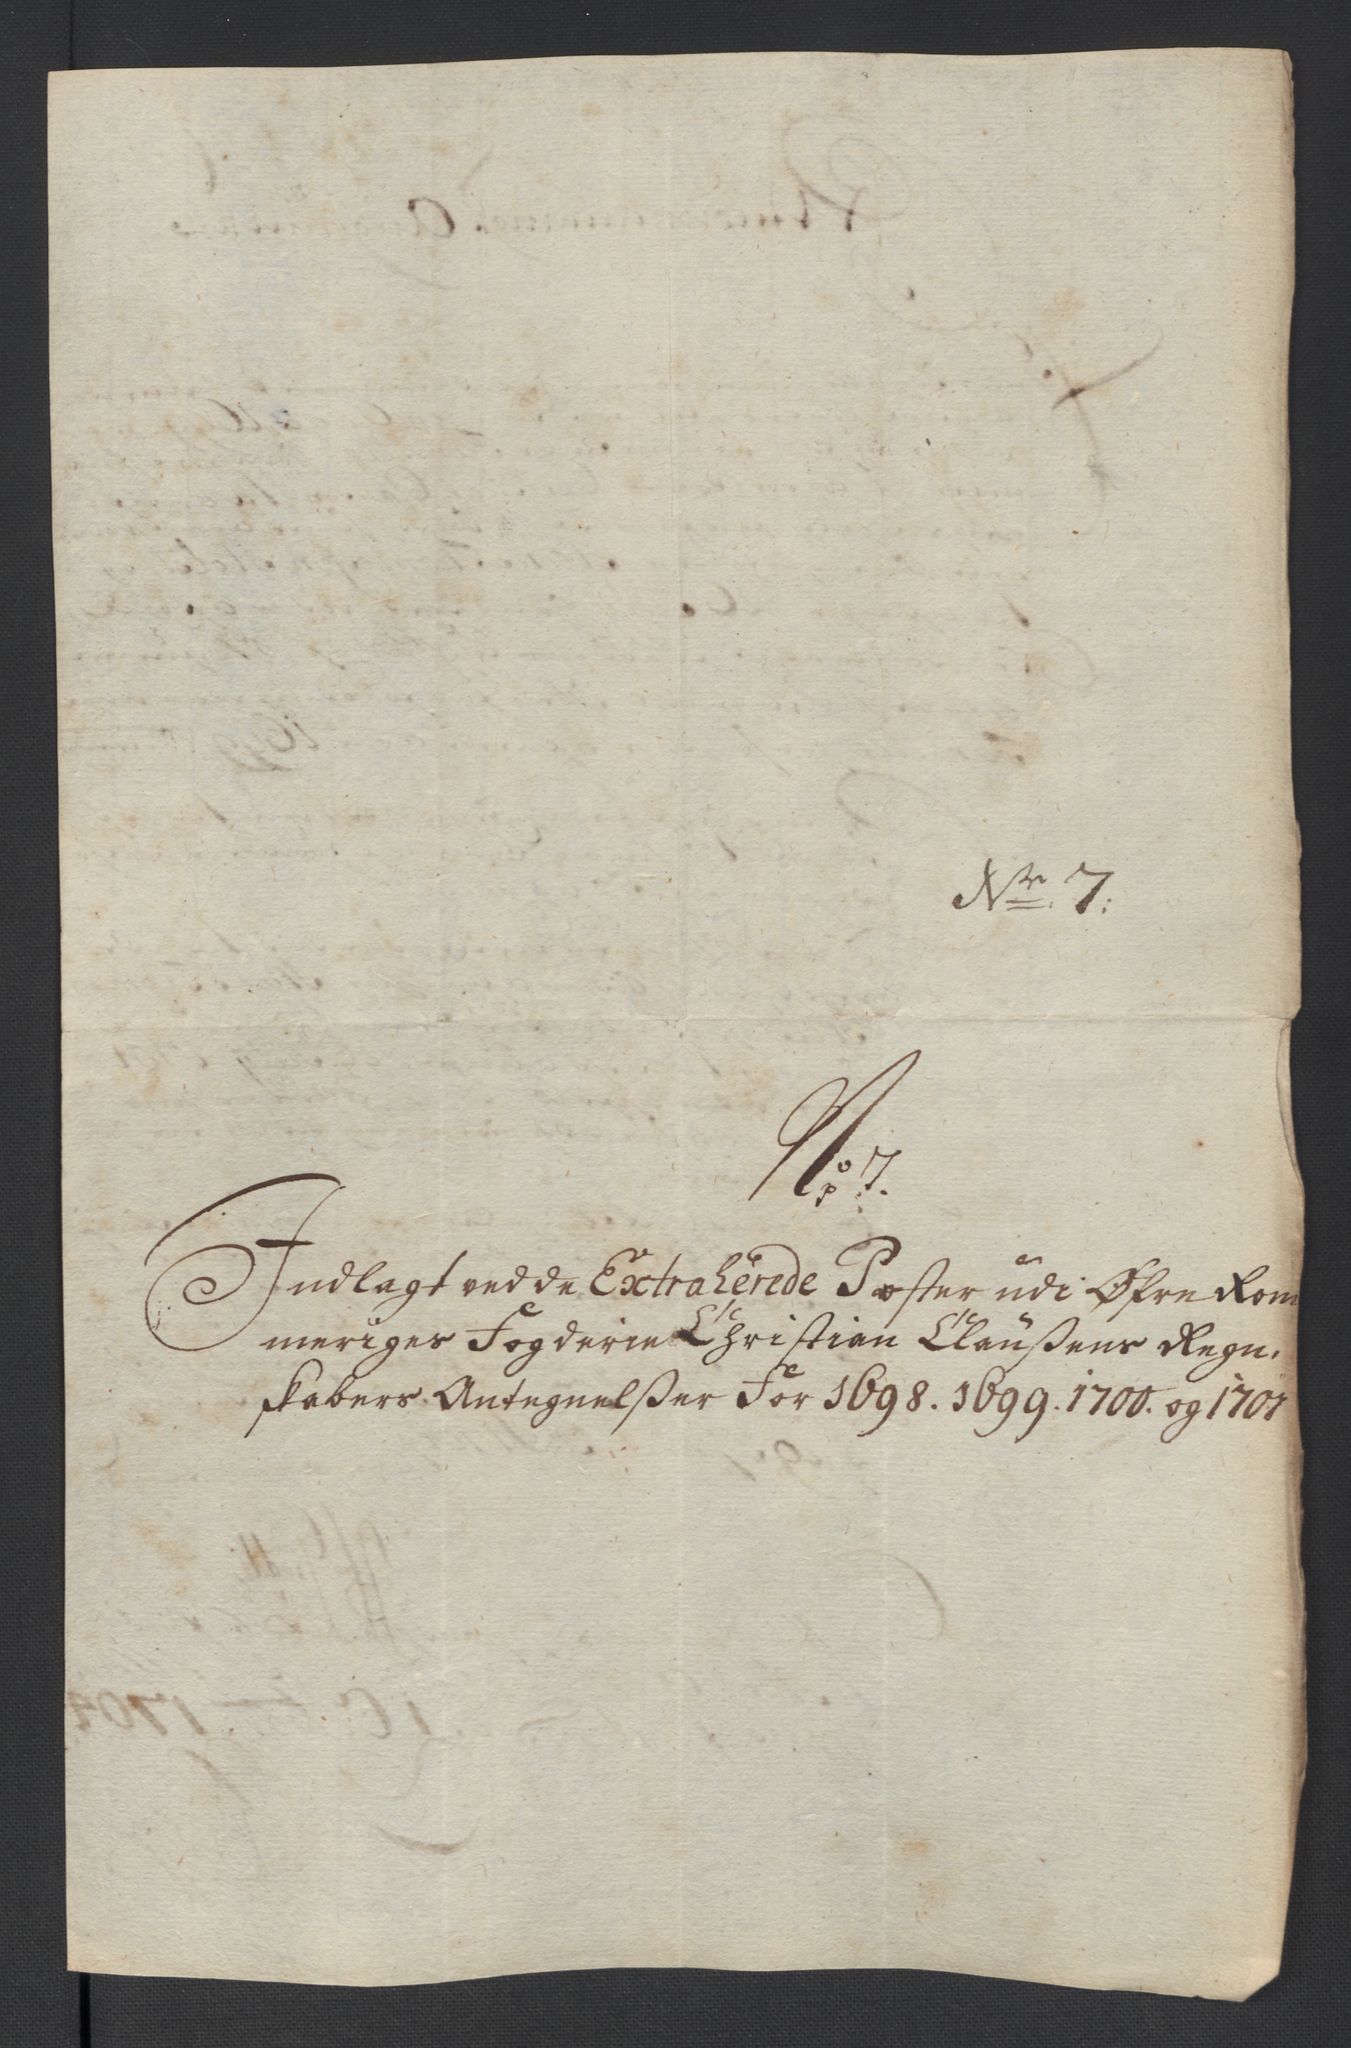 Nr. 7.
No. 7.
Indlagt ved de Extraherede Poster udi Øfre Rom
meriges Fogderie Christian Claußens Regn.
skabers Antegnelßer For 1698. 1699. 1700. og 1701